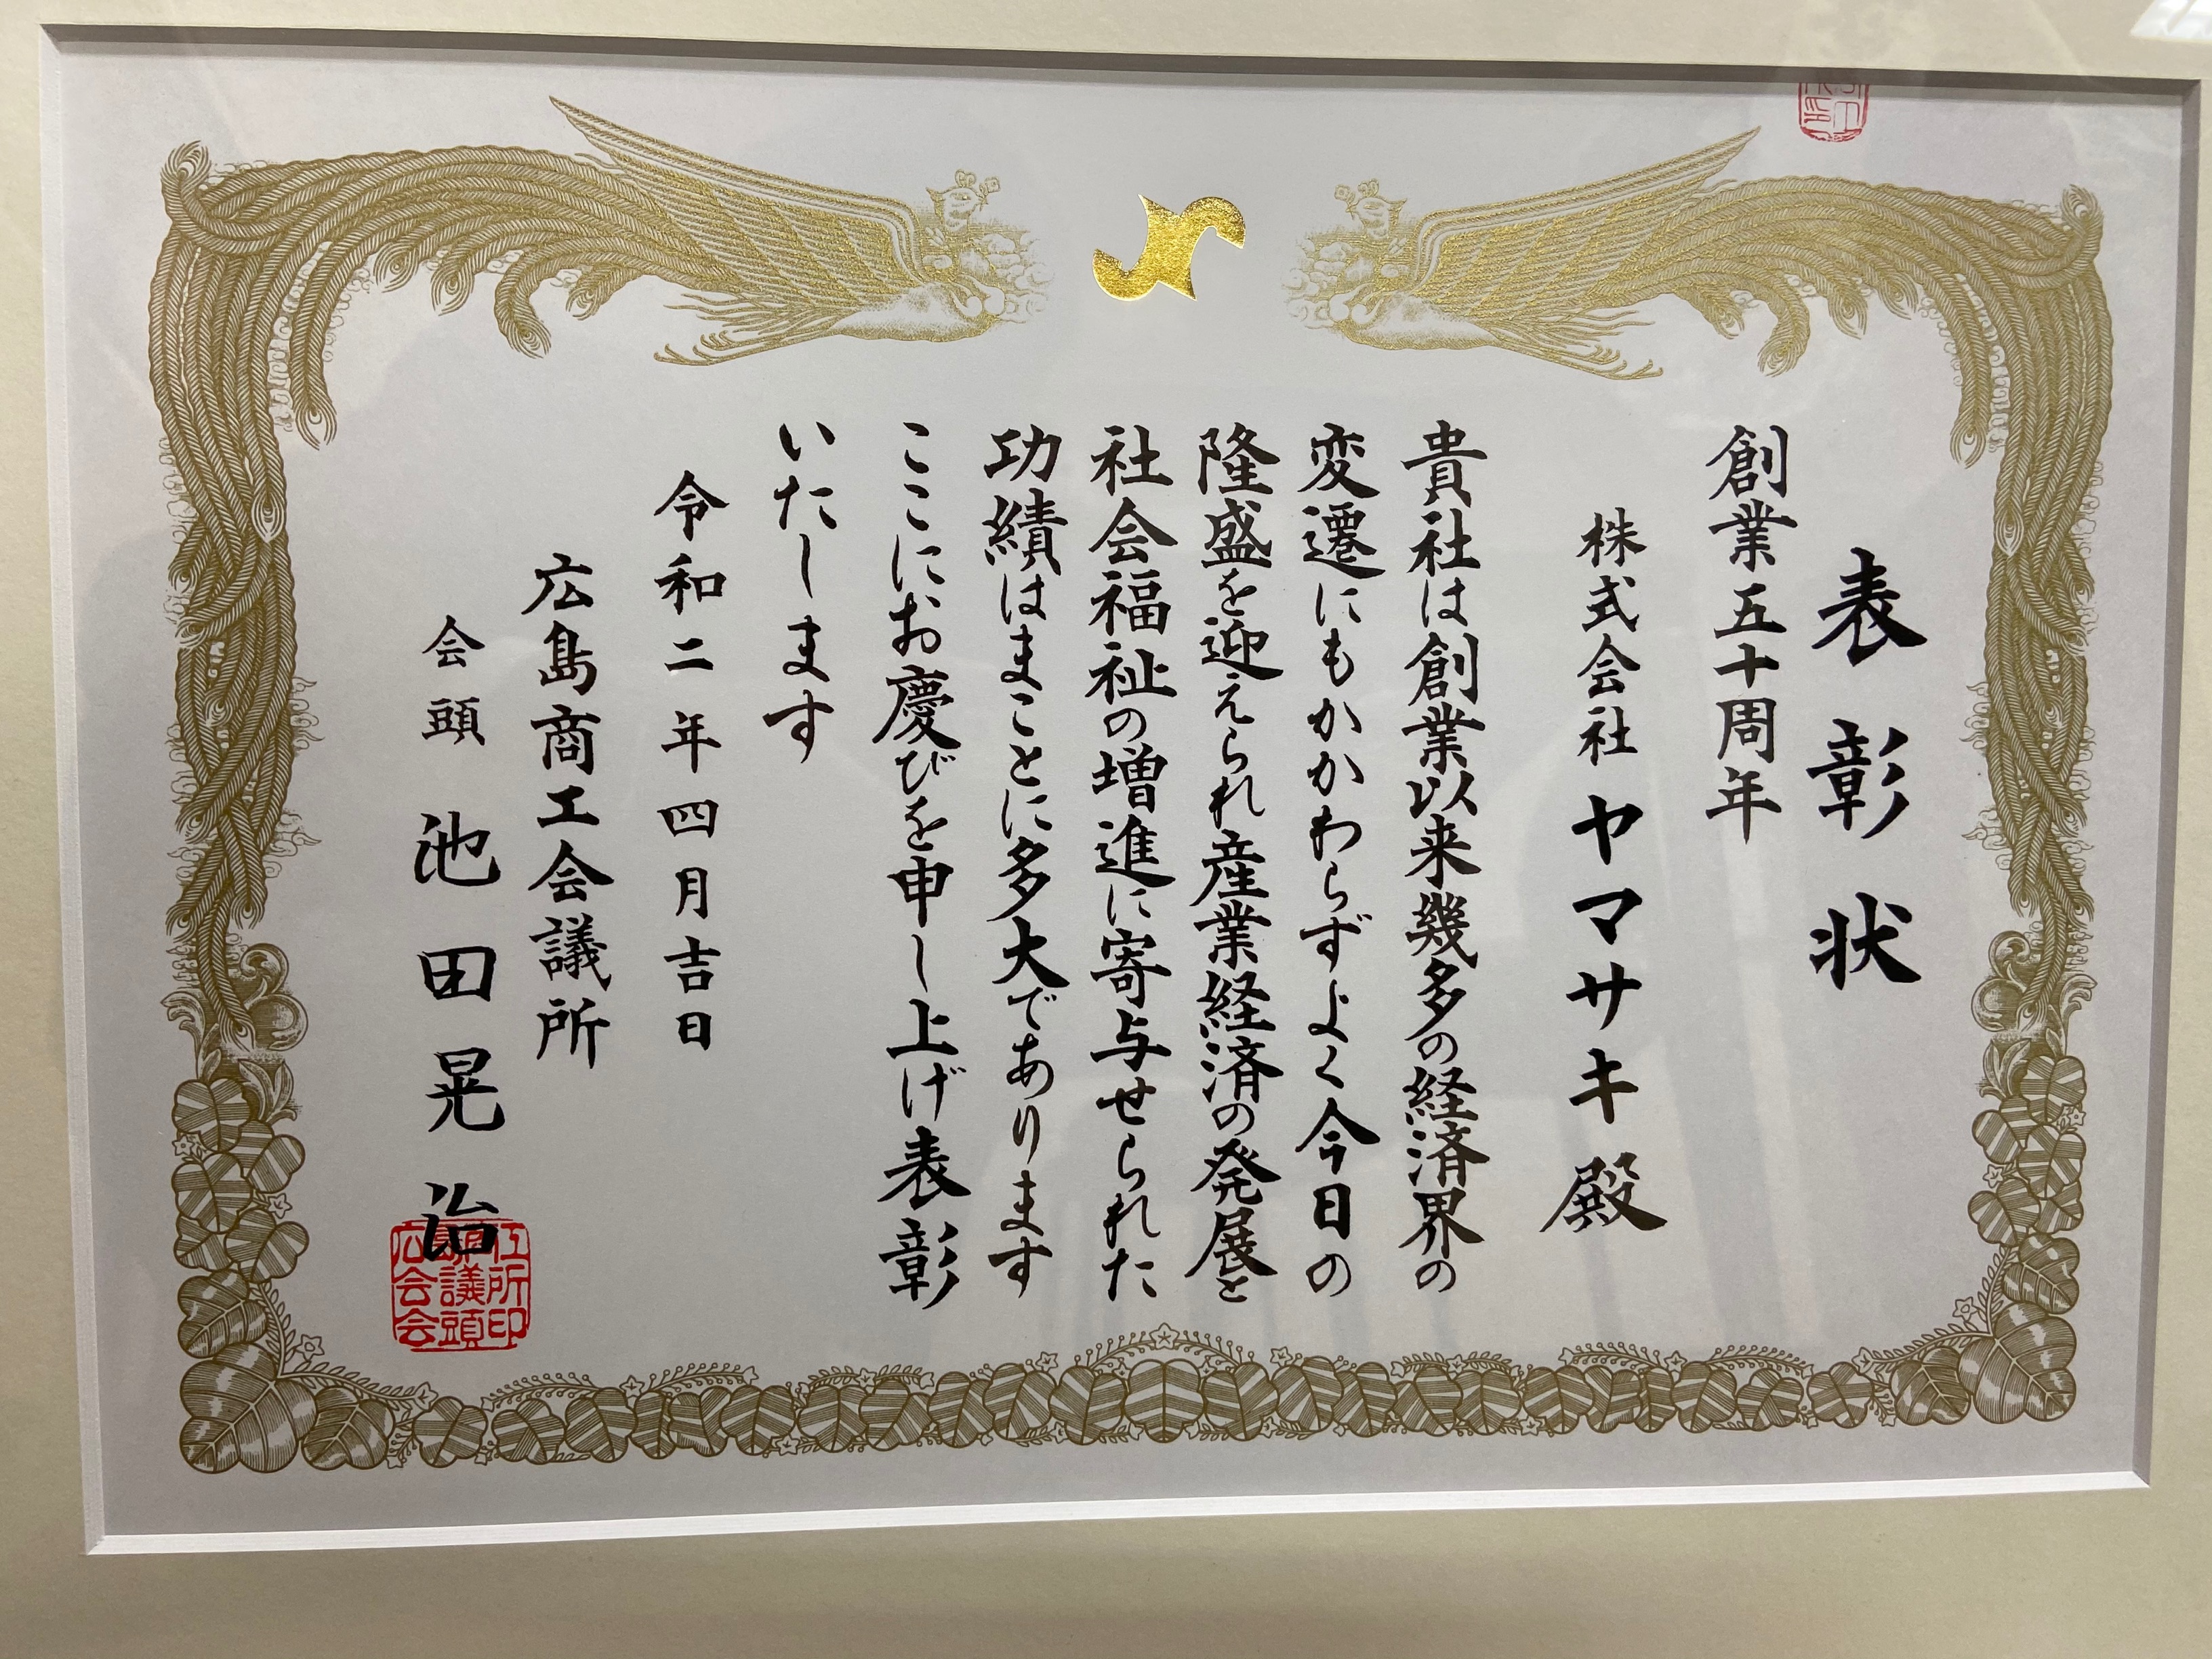 表彰状
創業五十周年
株式会社ヤマサキ殿
貴社は創業以来幾多の経済界の
変遷にもかかわらずよく今日の
隆盛を迎えられ産業経済の発展と
社会福祉の増進に寄与せられた
功績はまことに多大であります
ここにお慶びを申し上げ表彰
いたします
令和二年四月吉日
広島商工会議所
会頭 池田晃治